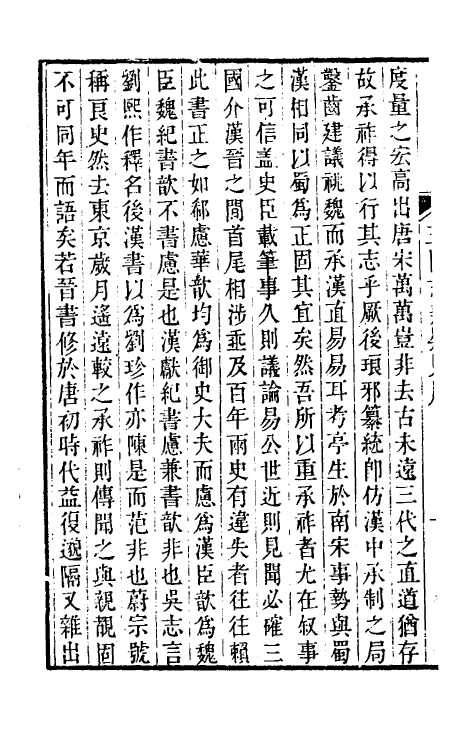 度量之宏高出唐宋萬萬豈非去古未遠三代之直道猶存
故承祚得以行其志乎厥後琅邪纂統卽仿漢中承制之局
鑿齒建議祧魏而承漢直易易耳考亭生於南宋事勢與蜀
漢相同以蜀為正固其宜矣然吾所以重承祚者尤在叙事
之可信盖史臣載筆事久則議論易公世近則見聞必確三
國介漢晉之間首尾相涉垂及百年兩史有違失者往往賴
此書正之如郗慮華歆均為御史大夫而慮為漢臣歆為魏
臣魏紀書歆不書慮是也漢獻紀書慮兼書歆非也吳志言
劉熙作釋名後漢書以為劉珍作亦陳是而范非也蔚宗號
稱良史然去東京歲月遙遠較之承祚則傳聞之與親覩固
不可同年而語矣若晉書修於唐初時代益復遼隔又雜出